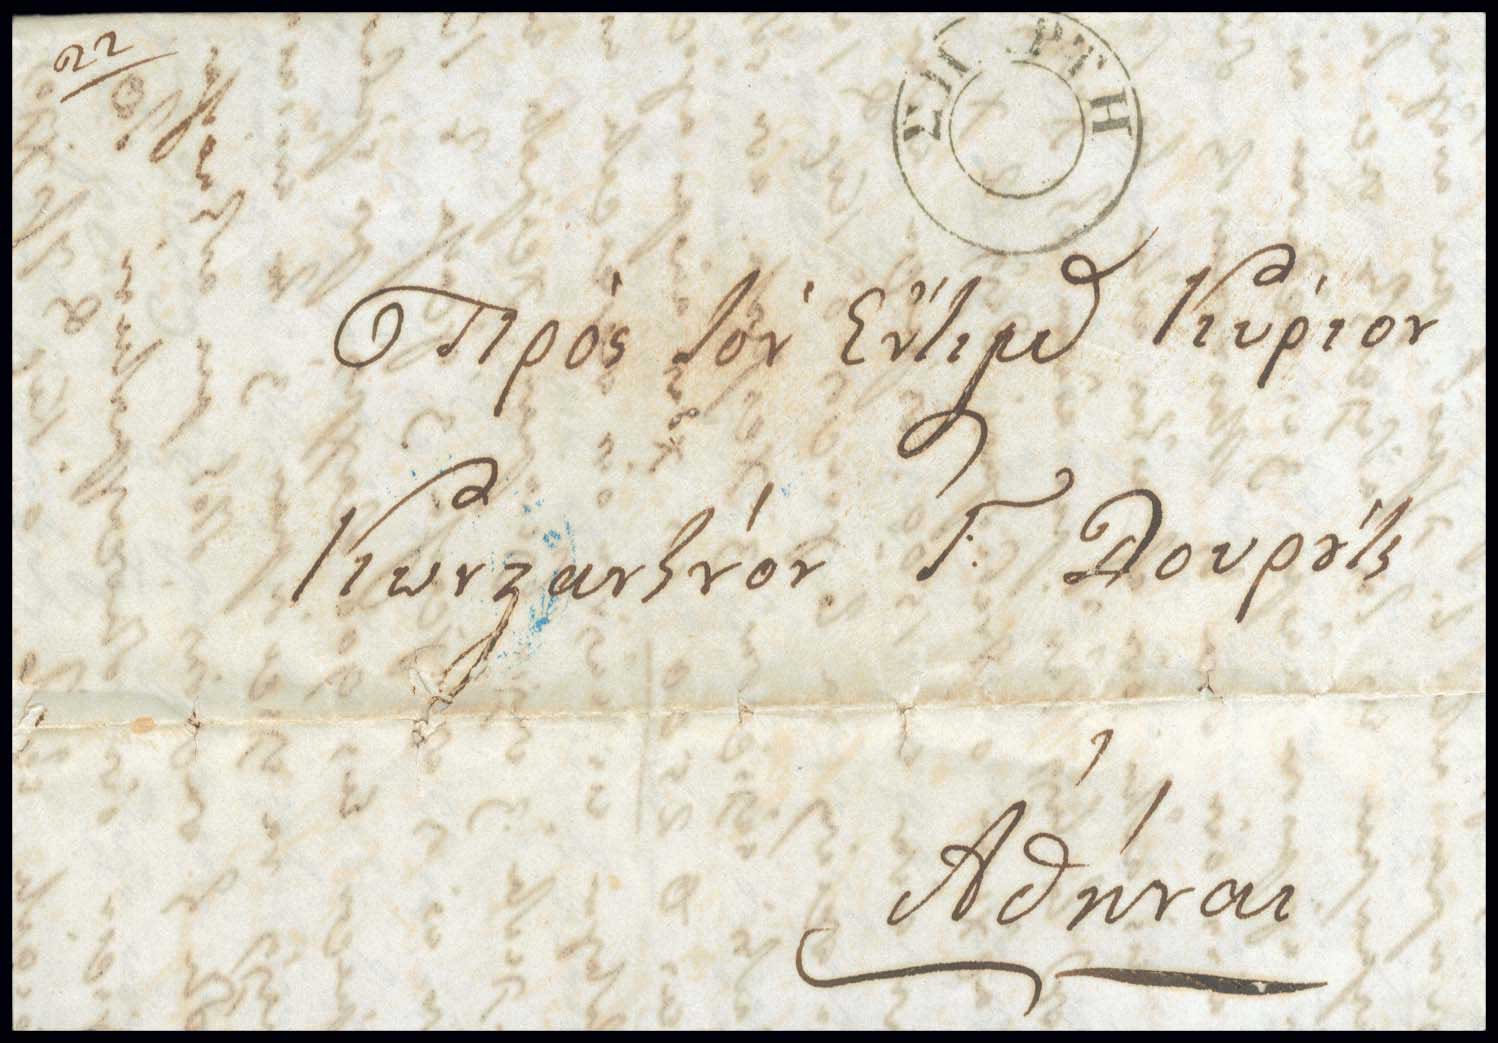 22
ΣΠΑΡΤΗ
Πρὸς τὸν Ἐντιμ Κύριον
Κωνσταντῖνον Γ. Δουρούτη
Ἀθήναι